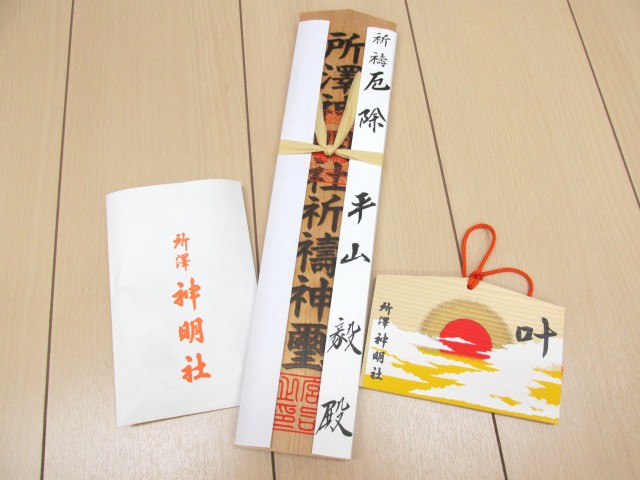 所澤
神明社
所澤神明社祈禱神璽
祈禱 厄除 平山 毅 殿
叶
所澤神明社